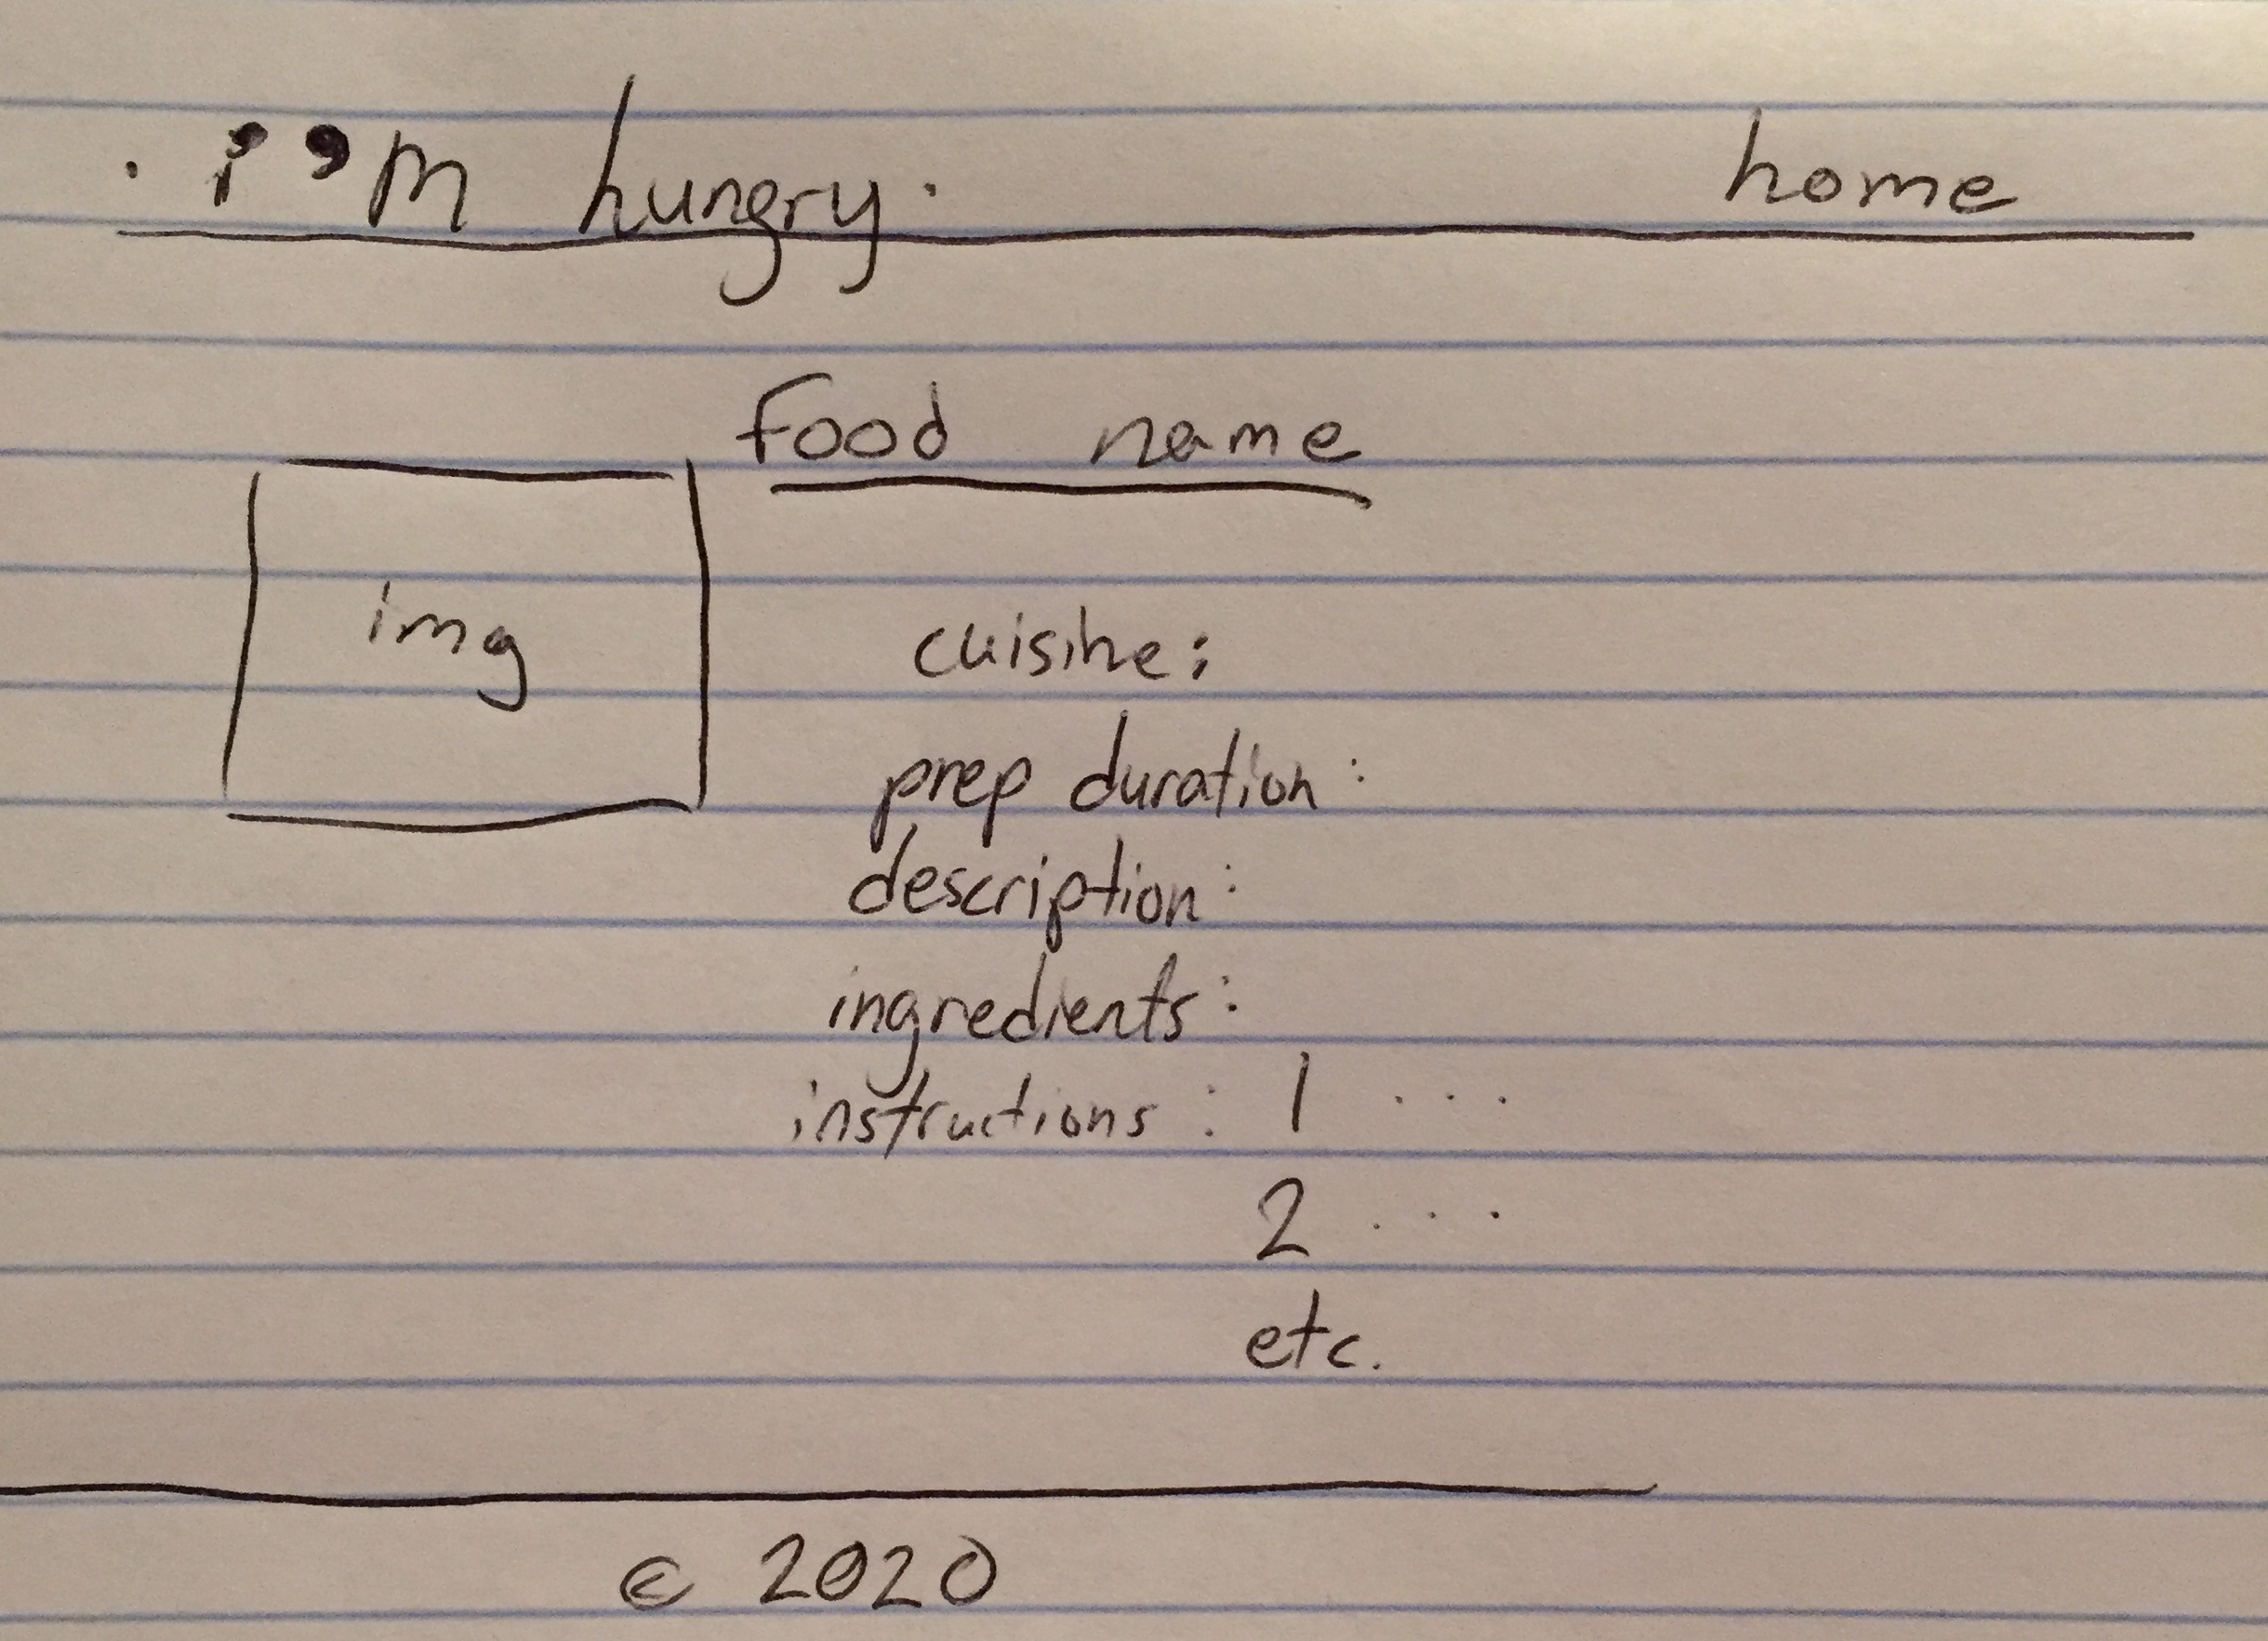 . i'm hungry. home
food name
img
cuisine:
prep duration:
description:
ingredients:
instructions: 1 ...
2 ...
etc.
© 2020